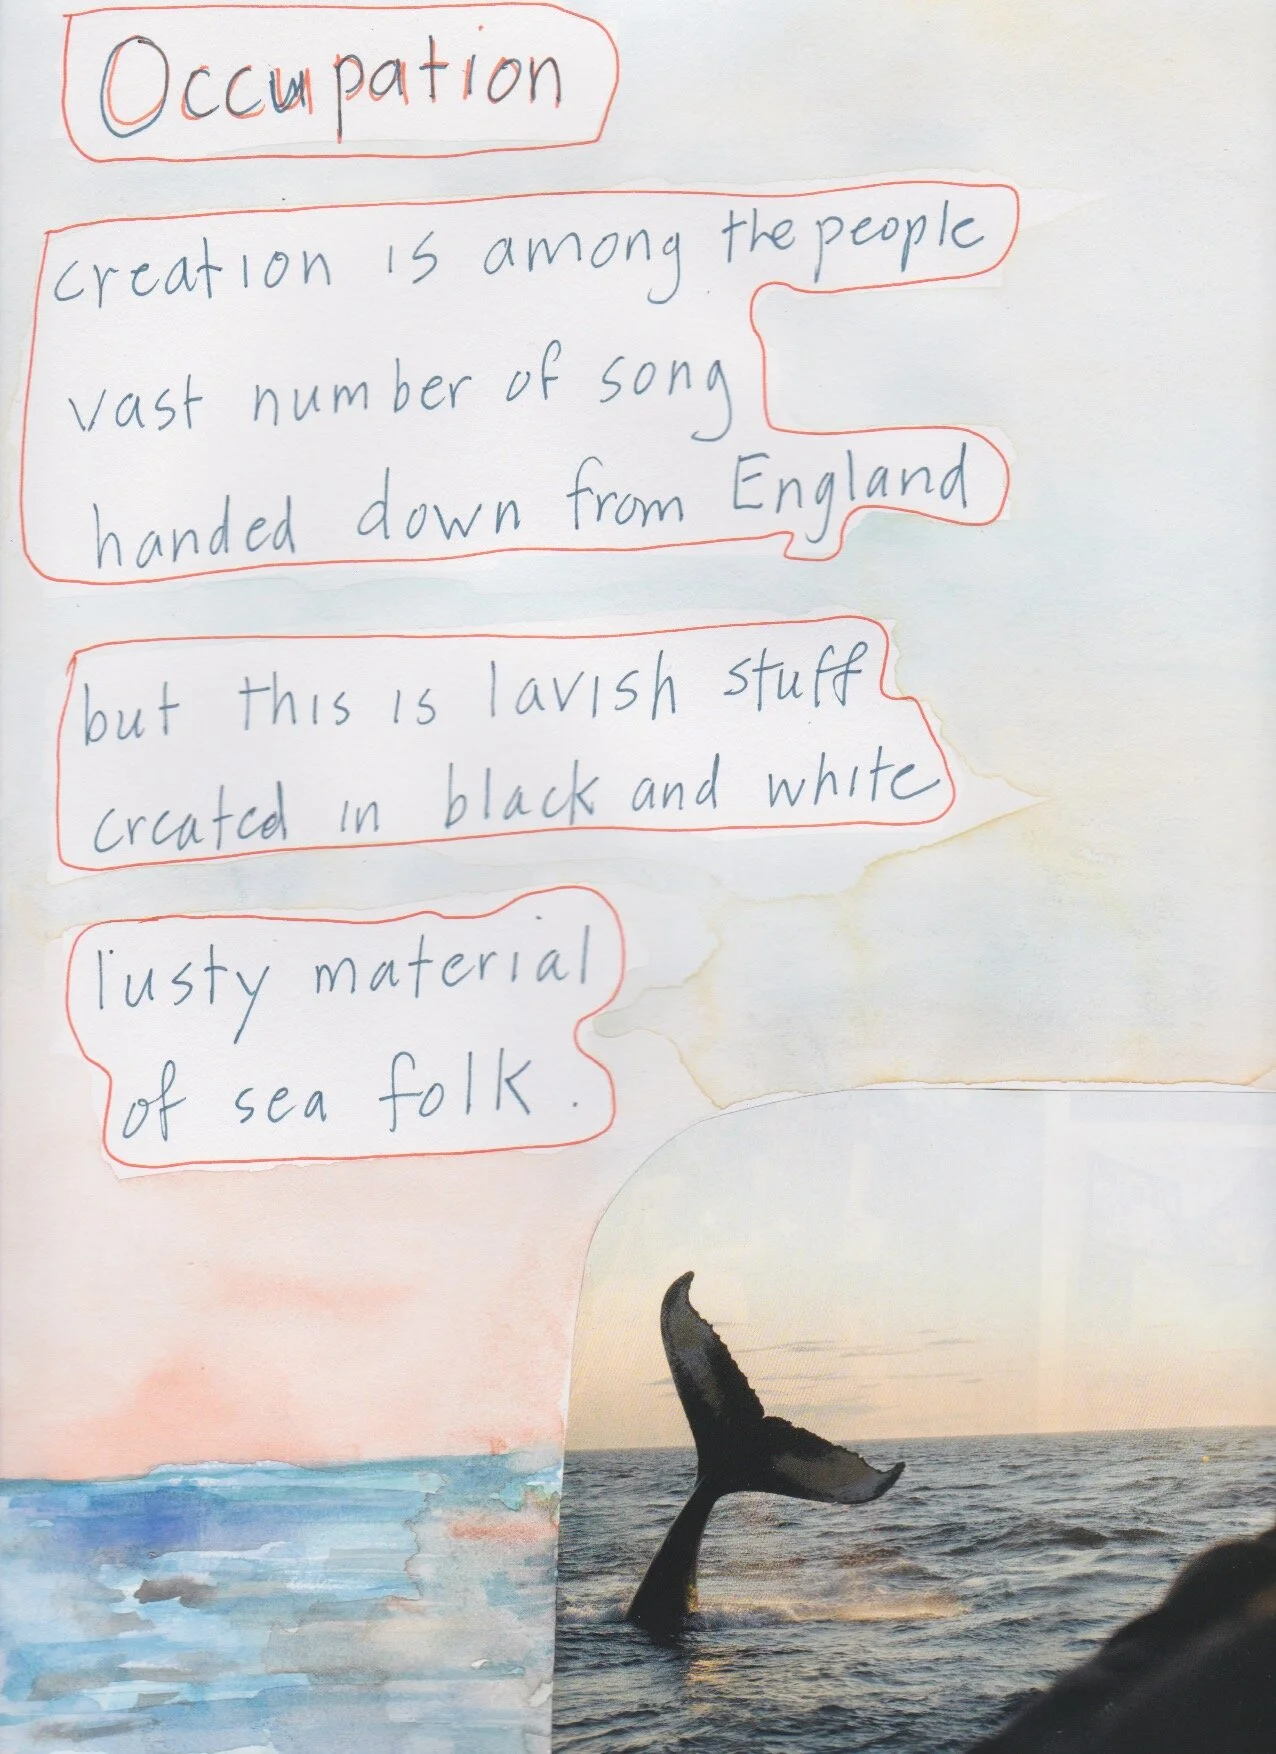 Occupation
creation is among the people
vast number of song
handed down from England
but this is lavish stuff
created in black and white
lusty material
of sea folk.